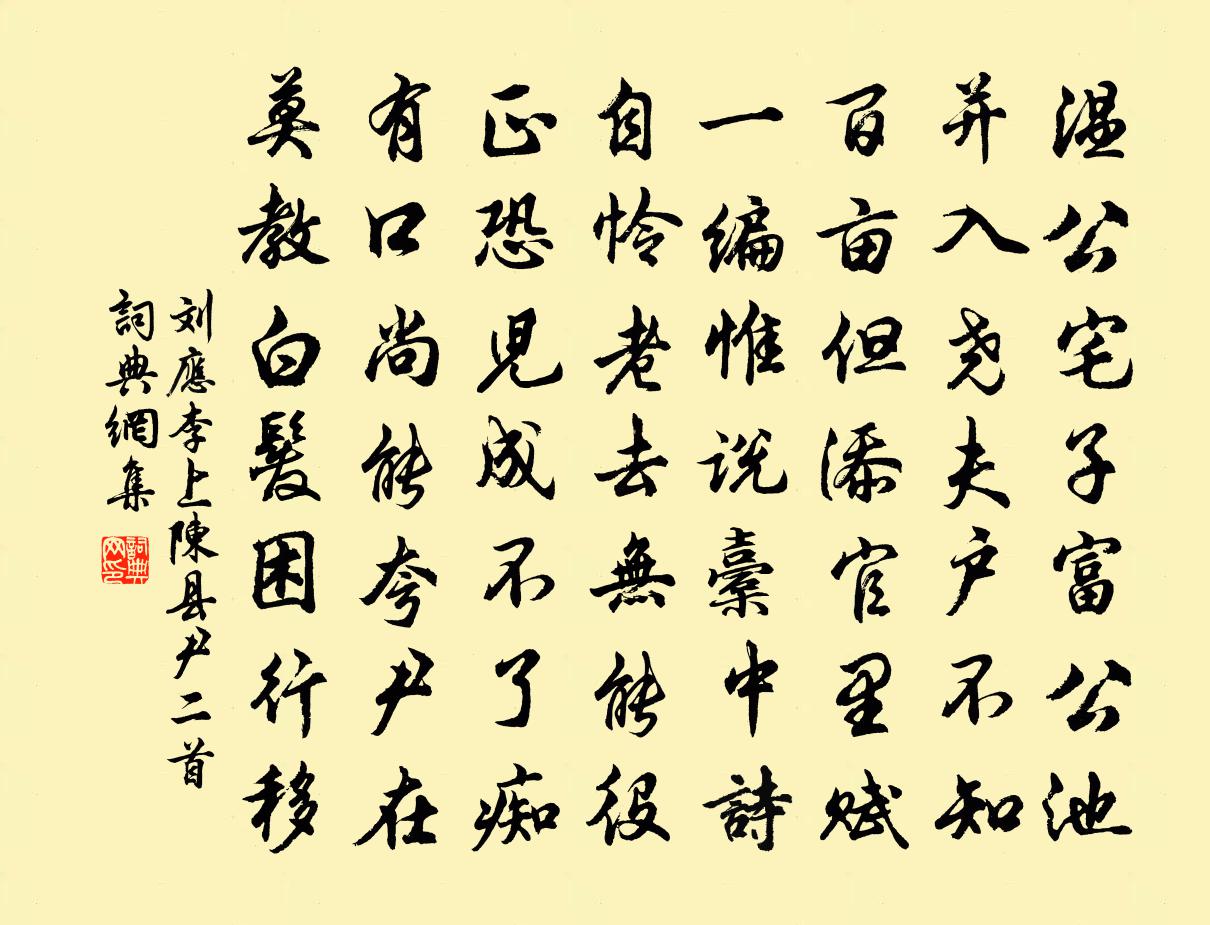 温公宅子富公池
并入尧夫户不知
百亩但添官里赋
一编惟说橐中詩
自怜老去無能役
正恐児成不了痴
有口尚能夸尹在
莫教白髮困行移
刘應李上陳县尹二首
詞典網集
詞典网印